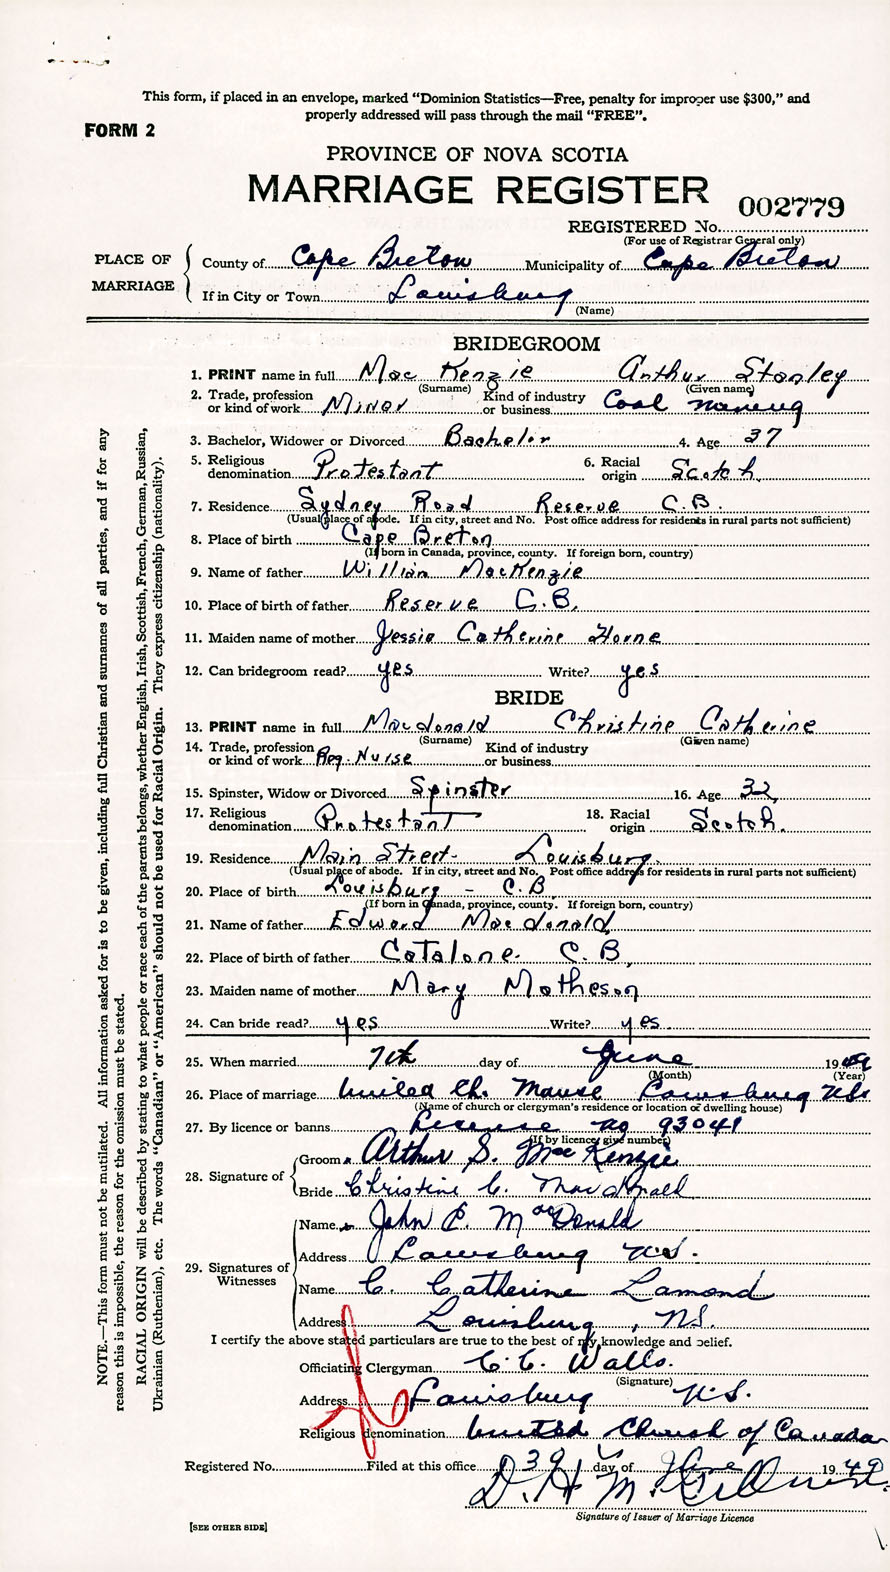 This form, if placed in an envelope, marked "Dominion Statistics—Free, penalty for improper use $300," and
properly addressed will pass through the mail "FREE".
FORM 2
PROVINCE OF NOVA SCOTIA
MARRIAGE REGISTER
002779
REGISTERED No.
(For use of Registrar General only)
PLACE OF MARRIAGE
County of Cape Breton Municipality of Cape Breton
If in City or Town Louisburg
(Name)
BRIDEGROOM
1. PRINT name in full MacKenzie Arthur Stanley
(Surname) (Given name)
2. Trade, profession or kind of work Miner Kind of industry or business Coal mining
3. Bachelor, Widower or Divorced Bachelor 4. Age 37
5. Religious denomination Protestant 6. Racial origin Scotch
7. Residence Sydney Road Reserve C.B.
(Usual place of abode. If in city, street and No. Post office address for residents in rural parts not sufficient)
8. Place of birth Cape Breton
(If born in Canada, province, county. If foreign born, country)
9. Name of father William MacKenzie
10. Place of birth of father Reserve C.B.
11. Maiden name of mother Jessie Catherine Horne
12. Can bridegroom read? yes Write? yes
BRIDE
13. PRINT name in full Macdonald Christine Catherine
(Surname) (Given name)
14. Trade, profession or kind of work Reg. Nurse Kind of industry or business
15. Spinster, Widow or Divorced Spinster 16. Age 32
17. Religious denomination Protestant 18. Racial origin Scotch.
19. Residence Main Street- Louisburg.
(Usual place of abode. If in city, street and No. Post office address for residents in rural parts not sufficient)
20. Place of birth Louisburg - C.B.
(If born in Canada, province, county. If foreign born, country)
21. Name of father Edward Macdonald
22. Place of birth of father Catalone. C.B.
23. Maiden name of mother Mary Matheson
24. Can bride read? yes Write? yes.
25. When married 7th day of June 1949
(Month) (Year)
26. Place of marriage United Ch. Manse Louisburg N.S.
(Name of church or clergyman's residence or location of dwelling house)
27. By licence or banns License no 93041
(If by licence, give number)
28. Signature of
Groom Arthur S. MacKenzie
Bride Christine C. Macdonald
29. Signatures of Witnesses
Name John E. MacDonald
Address Louisburg N.S.
Name C. Catherine Lamond
Address Louisburg, N.S.
I certify the above stated particulars are true to the best of my knowledge and belief.
Officiating Clergyman C. C. Walls.
(Signature)
Address Louisburg N.S.
Religious denomination United Church of Canada
Registered No. Filed at this office day of June 1949
D. H. M.
Signature of Issuer of Marriage Licence
[SEE OTHER SIDE]
NOTE.—This form must not be mutilated. All information asked for is to be given, including full Christian and surnames of all parties, and if for any
reason this is impossible, the reason for the omission must be stated.
RACIAL ORIGIN will be described by stating to what people or race each of the parents belongs, whether English, Irish, Scottish, French, German, Russian,
Ukrainian (Ruthenian), etc. The words "Canadian" or "American" should not be used for Racial Origin. They express citizenship (nationality).